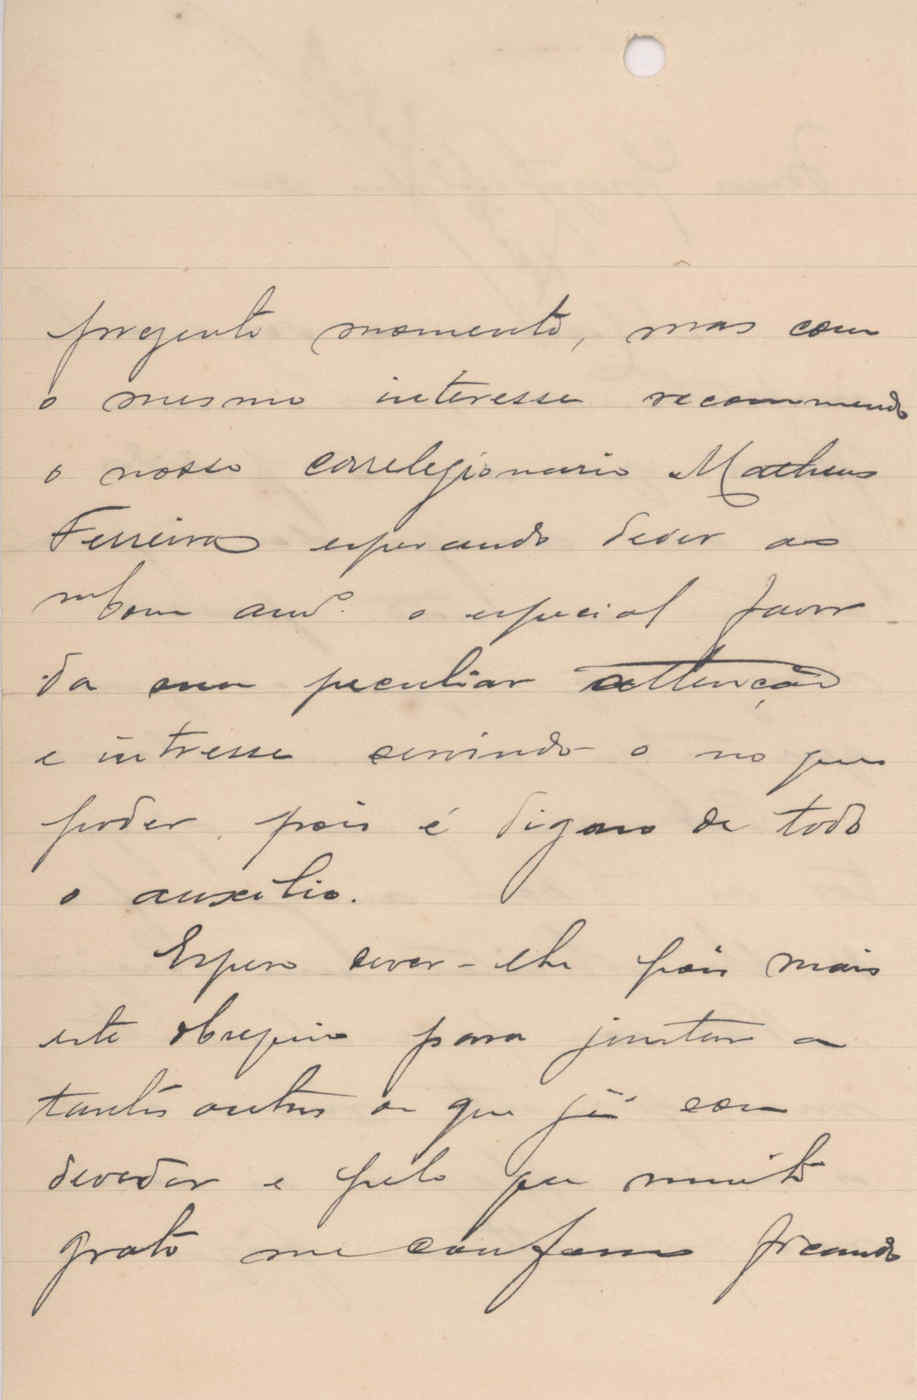 presente momento, mas com
o mesmo interesse recommendo
o nosso correlegionario Matheus
Ferreira esperando dever ao
bom amº. o especial favor
da sua peculiar attenção
e intresse servindo o no que
poder, pois é digno de todo
o auxilio.
Espero dever-lhe pois mais
este obsequio para juntar a
tantos outros de que já sou
devedor e pelo que muito
grato me confesso ficando